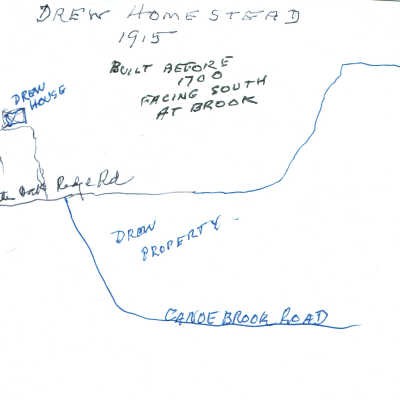 DREW HOMESTEAD
1915
BUILT BEFORE
1700
FACING SOUTH
AT BROOK
DREW
HOUSE
Ridge Rd
DREW
PROPERTY -
CANOEBROOK ROAD